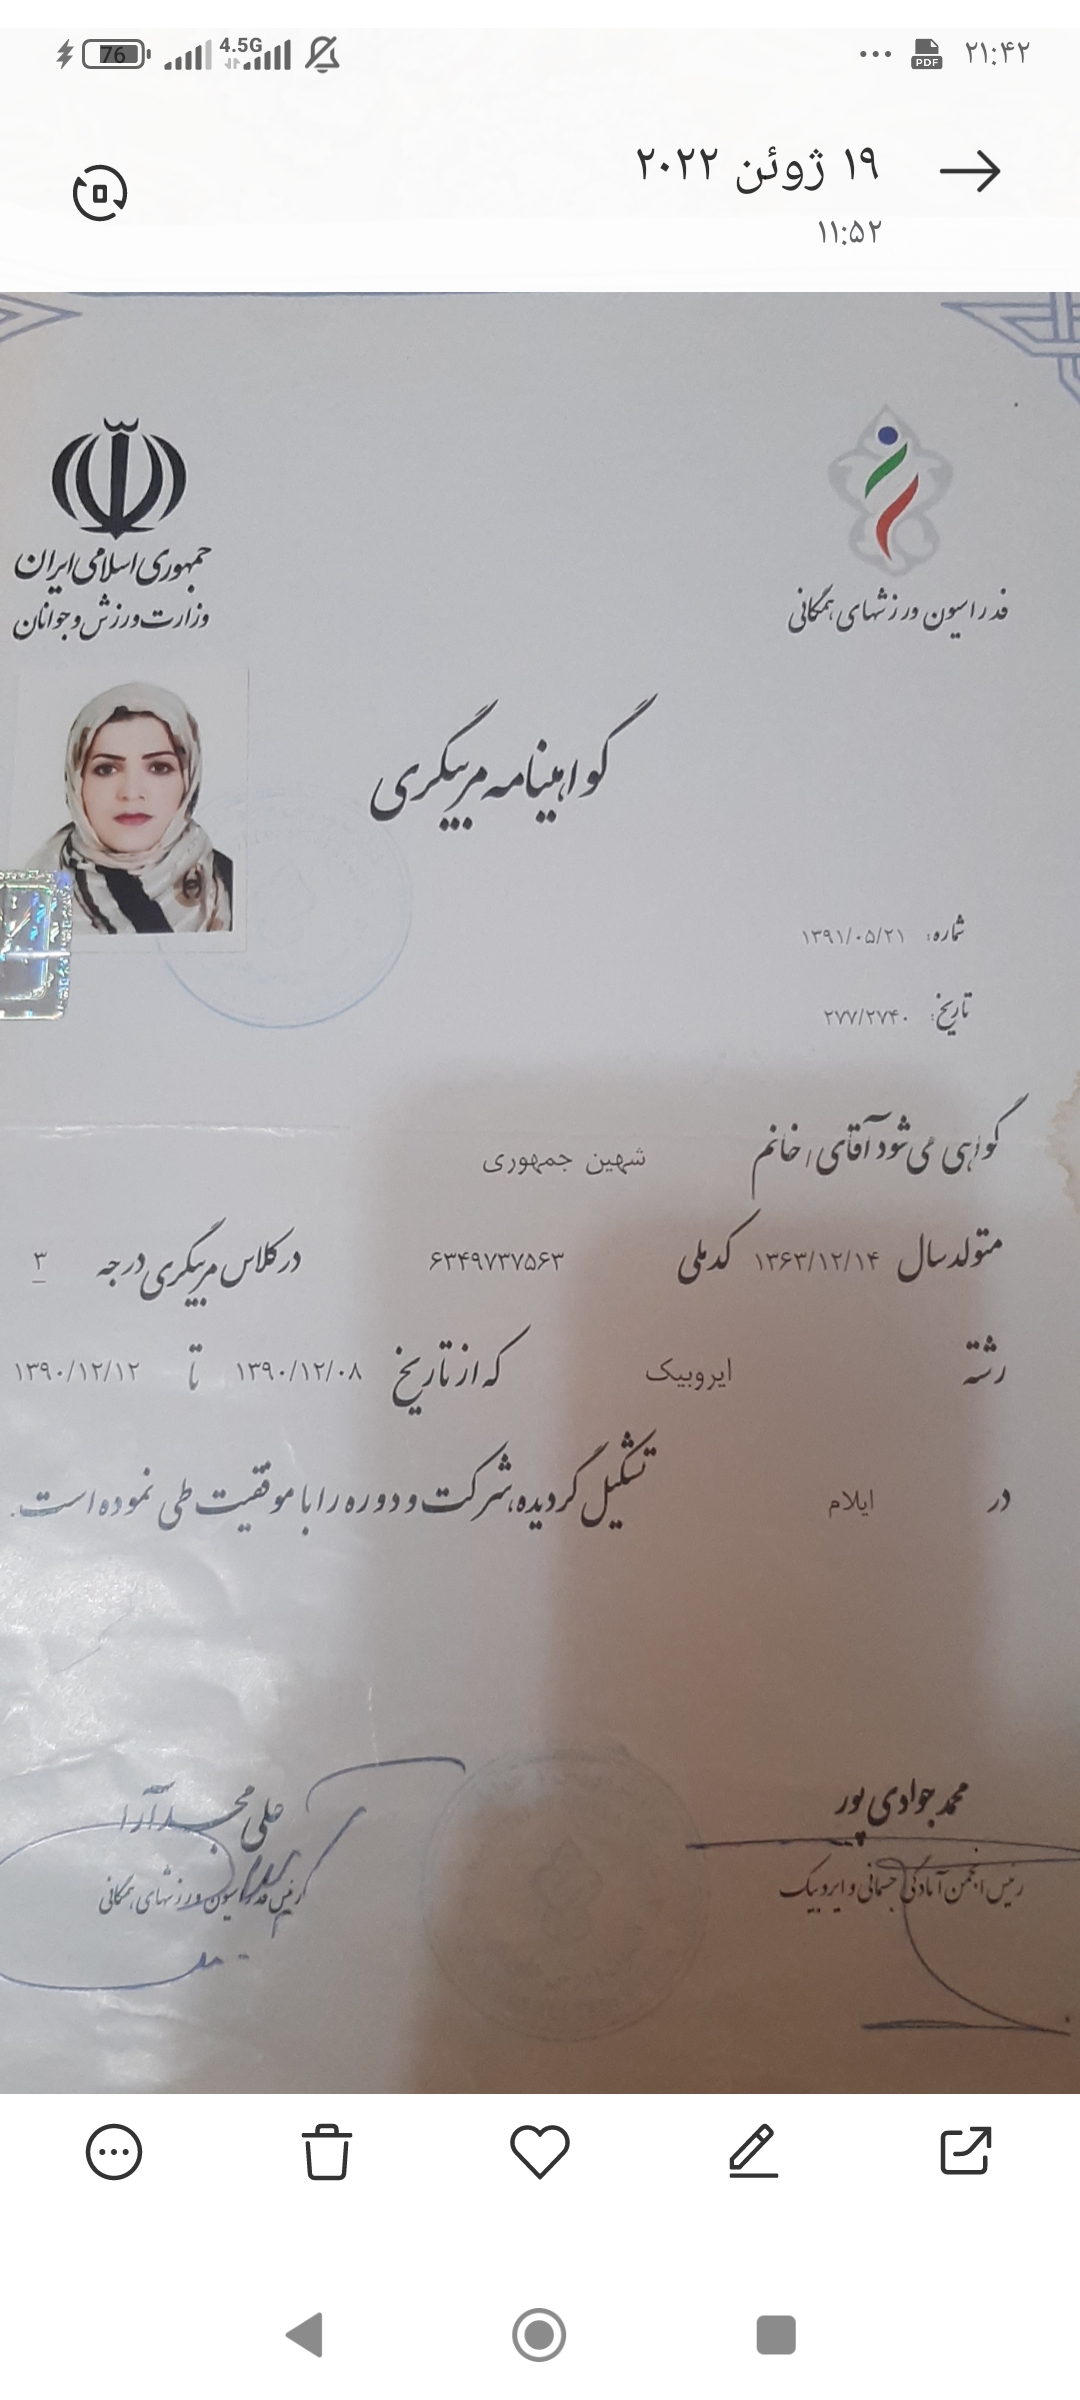 76 4.5G PDF ۲۱:۴۲
۱۹ ژوئن ۲۰۲۲
۱۱:۵۲
جمهوری اسلامی ایران
وزارت ورزش و جوانان
فدراسیون ورزشهای همگانی
گواهینامه مربیگری
شماره: ۱۳۹۱/۰۵/۲۱
تاریخ: ۲۷۷/۲۷۴۰
گواهی می شود آقای / خانم شهین جمهوری
متولد سال ۱۳۶۳/۱۲/۱۴ کد ملی ۶۳۴۹۷۳۷۵۶۳ در کلاس مربیگری درجه ۳
رشته ایروبیک که از تاریخ ۱۳۹۰/۱۲/۰۸ تا ۱۳۹۰/۱۲/۱۲
در ایلام تشکیل گردیده، شرکت و دوره را با موفقیت طی نموده است.
محمد جوادی پور
رئیس انجمن آمادگی جسمانی و ایروبیک
علی مجدآرا
رئیس فدراسیون ورزشهای همگانی